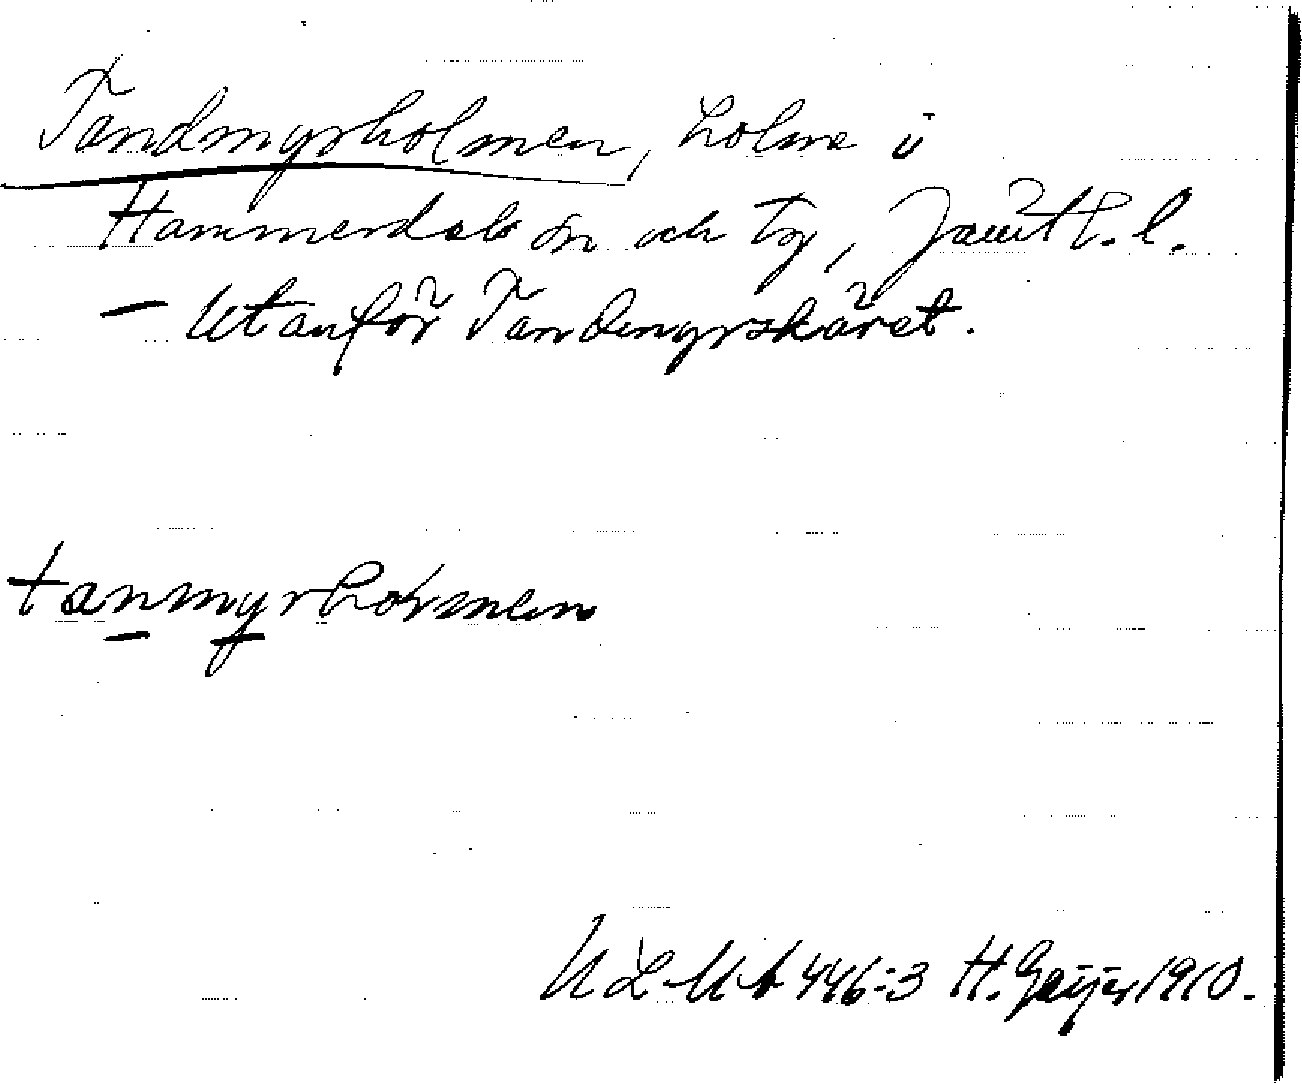 Tandmyrholmen, holme i
Hammerdals sn och tg, Jämtl. l.
– Utanför Tandmyrskäret.
tanmyrhoḷmen
ULMA 446:3 H. Geijer 1910.